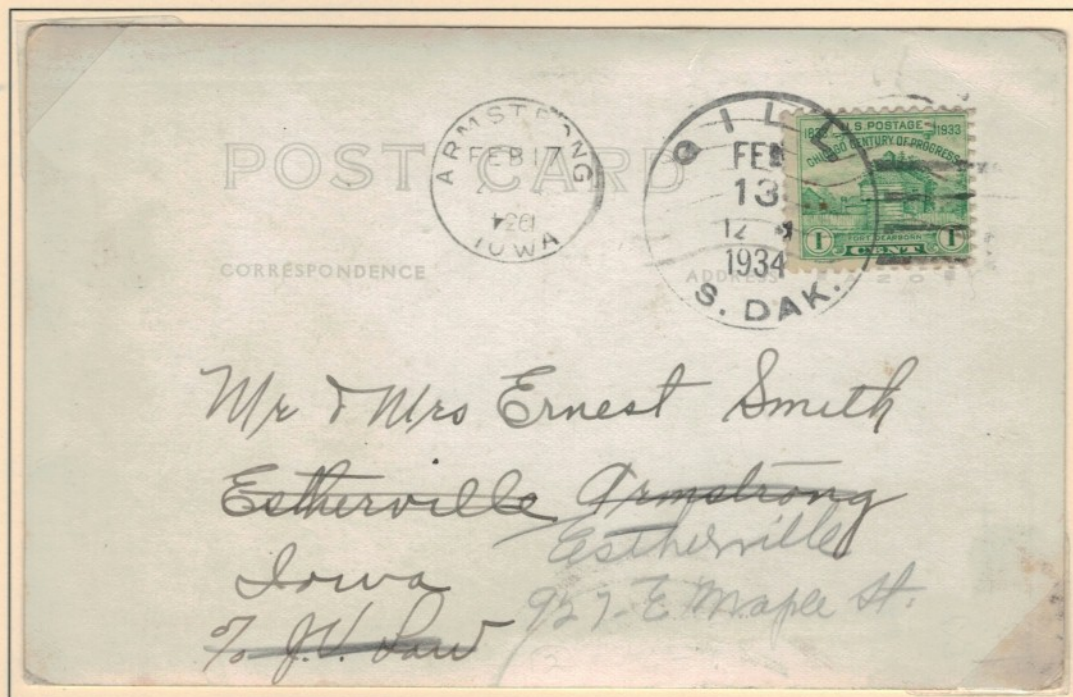 ARMSTRONG
FEB 17
1934
IOWA
FEB
13
12
1934
S. DAK.
U.S. POSTAGE 1933
CHICAGO CENTURY OF PROGRESS
FORT DEARBORN
1 CENT 1
POST CARD
CORRESPONDENCE
ADDRESS
Mr & Mrs Ernest Smith
Estherville Armstrong
Estherville
Iowa
927 E. Maple St.
% J.V.